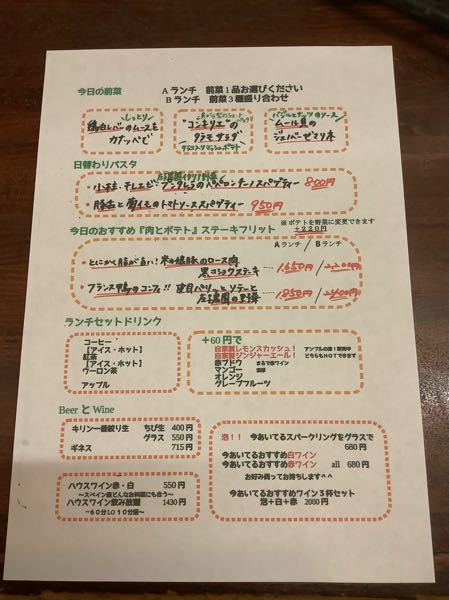 今日の前菜
Aランチ 前菜1品お選びください
Bランチ 前菜3種盛り合わせ
しっとり
鶏白レバーのムースを
カナッペで
"コンキリエ"の
タラモサラダ
バジルとナッツのソース
ムール貝の
日替わりパスタ
スパゲティー 800円
のトマトソーススパゲティー 950円
※ポテトを野菜に変更できます
+220円
今日のおすすめ『肉とポテト』ステーキフリット
Aランチ / Bランチ
・とにかく脂が旨い! のロース肉
黒コショウステーキ 1,650/2,200円
・フランス鴨のコンフィ!! 皮目パリッとソテーと
1,850/2,400円
ランチセットドリンク
コーヒー
【アイス・ホット】
紅茶
【アイス・ホット】
ウーロン茶
アップル
+60円で
自家製レモンスカッシュ!
自家製ジンジャーエール!
どちらもHOTできます
赤ブドウ まるで赤ワイン
マンゴー 濃厚
オレンジ
グレープフルーツ
Beer と Wine
キリン一番搾り生 ちび生 400円
グラス 550円
ギネス 715円
泡!! 今あいてるスパークリングをグラスで
680円
今あいてるおすすめ白ワイン
今あいてるおすすめ赤ワイン all 680円
お好み伺ってお持ちします^^
今あいてるおすすめワイン3杯セット
泡+白+赤 2000円
ハウスワイン赤・白 550円
~スペイン産どんなお料理にも合う~
ハウスワイン飲み放題 1430円
~60分LO10分前~